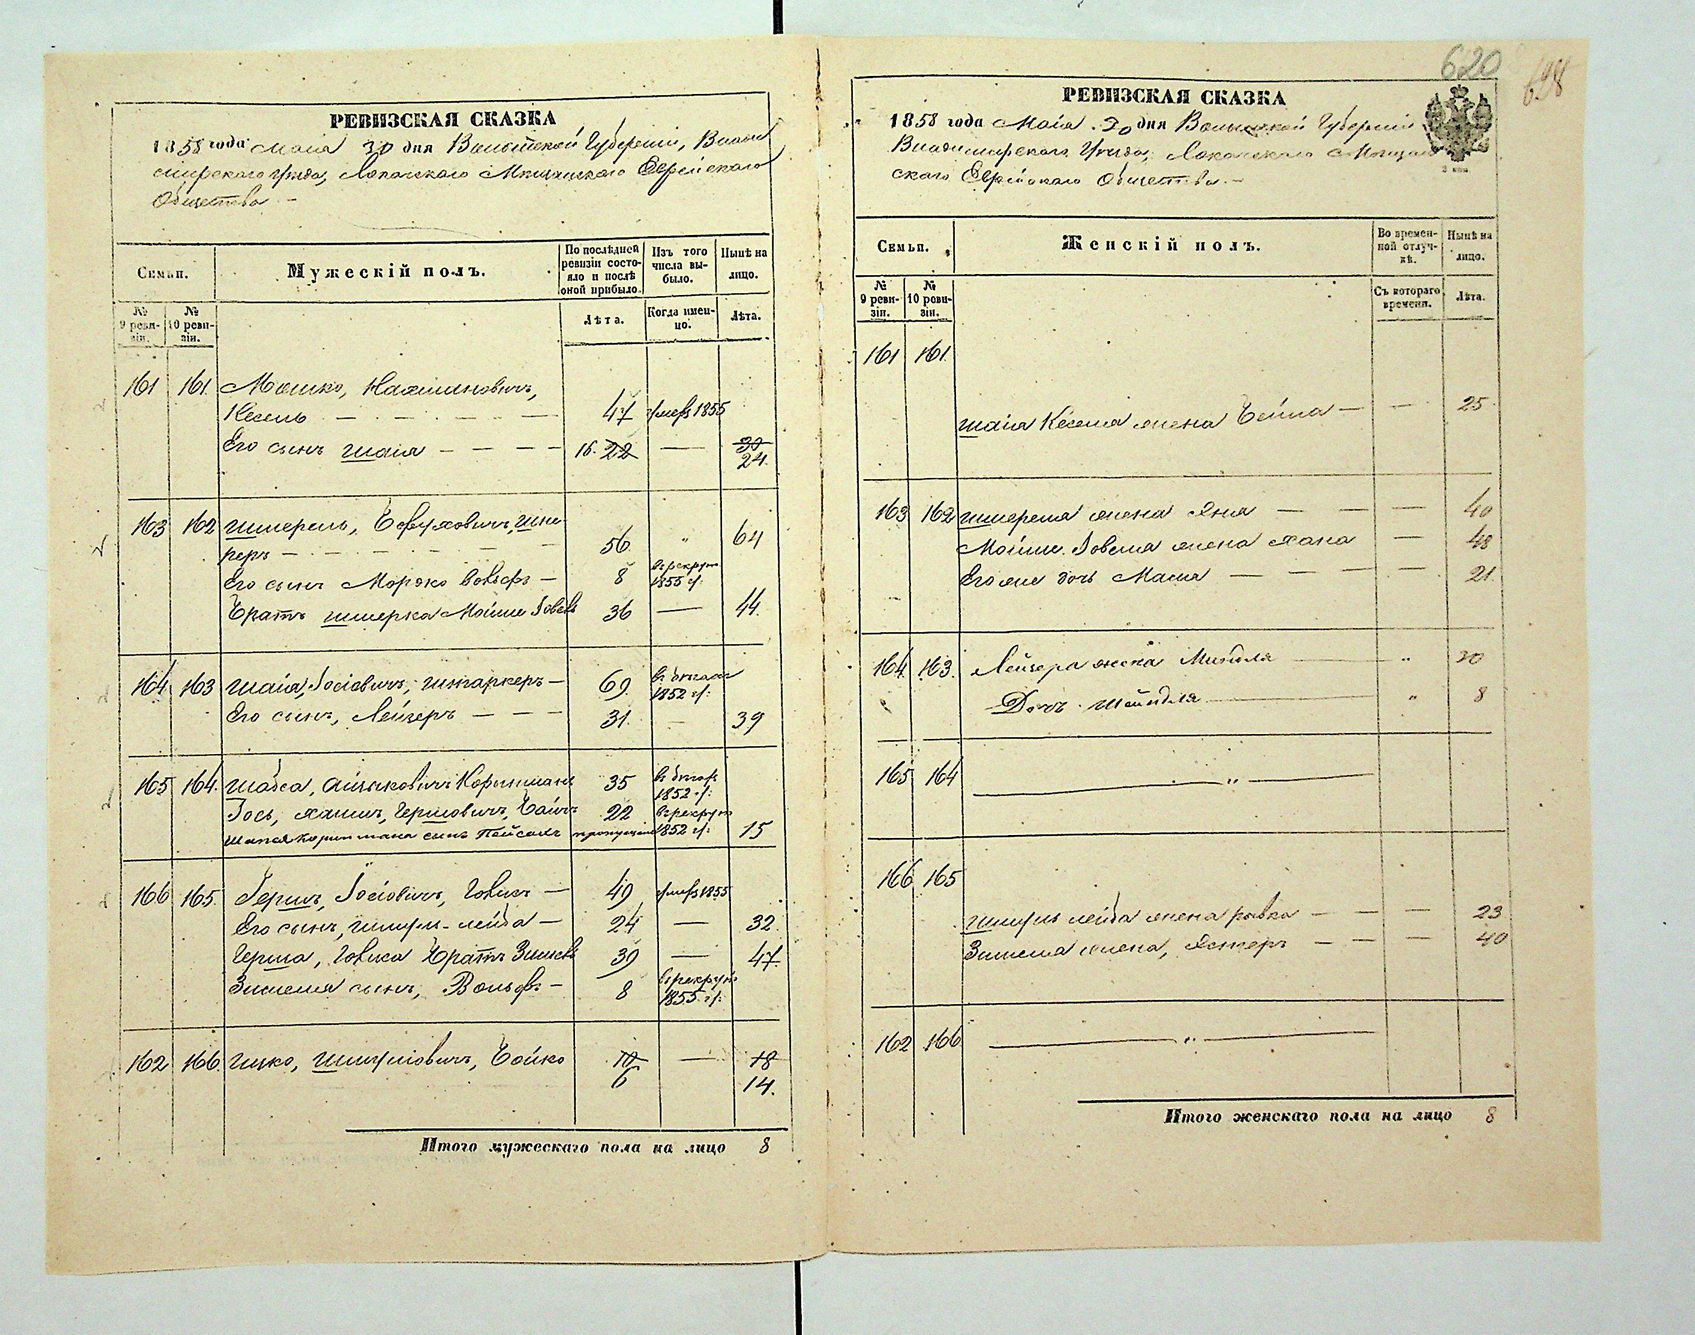 620
698
РЕВИЗСКАЯ СКАЗКА
1858 года Мая 30 дня Волынской Губернiи, Влади
мирскаго Уѣзда, Локачскаго Мѣщанскаго Еврейскаго
Общества
Семьи.
Мужескiй полъ.
По послѣдней
ревизiи состо-
яло и послѣ
оной прибыло.
Изъ того
числа вы-
было.
Нынѣ на
лицо.
№
9 реви-
зiи.
№
10 реви-
зiи.
Лѣта.
Когда имен-
но.
Лѣта.
161 161 Мошко, Нахмановичъ,
Кесель 47 умеръ 1855
Его сынъ Шаiя 16. 22 30
24.
163 162 Шмерель,
56 " 64
Его сынъ Мордко Вольфъ 8 в рекруты
1855 г.
Братъ Шмерка Мойше Iовель 36 44.
164 163 Шаiя, Iосiовичъ, 69 въ бѣгахъ
1852 г.
Его сынъ, Лейзеръ 31. 39
165 164. Шабса, Айзыковичъ Корытманъ 35
1852 г.
Iось, Хаимъ, Гершовичъ, 22 в рекруты
сынъ Пейсахъ пропущенъ 1852 г. 15
166 165. Гершъ, Iосiовичъ, 49 умеръ 1855
Его сынъ, Шмуль-Лейба 24 32.
Герша, Братъ Зисель 39 47.
Зиселя сынъ, Вольфъ 8 в рекруты
1855 г.
162 166. Ицко, Шмулiовичъ, Бойко 10 18
6 14.
Итого мужескаго пола на лицо 8
РЕВИЗСКАЯ СКАЗКА
1858 года Мая 30 дня Волынской Губернiи
Владимирскаго Уѣзда, Локачскаго Мѣщан
скаго Еврейскаго Общества.
Семьи.
Женскiй полъ.
Во времен-
ной отлуч-
кѣ.
Нынѣ на
лицо.
№
9 реви-
зiи.
№
10 реви-
зiи.
Съ котораго
времени.
Лѣта.
161 161
Шаiя Кеселя жена Бейла 25
163 162 Шмереля жена 40
Мойше Iовеля жена Хана 43
Его же дочь Маля 21.
164 163. Лейзера жена 30
Дочь Шейндля " 8
165 164 "
166 165
Шмуль Лейба жена Рывка 23
Зиселя жена, Эстеръ 40
162 166 "
Итого женскаго пола на лицо 8